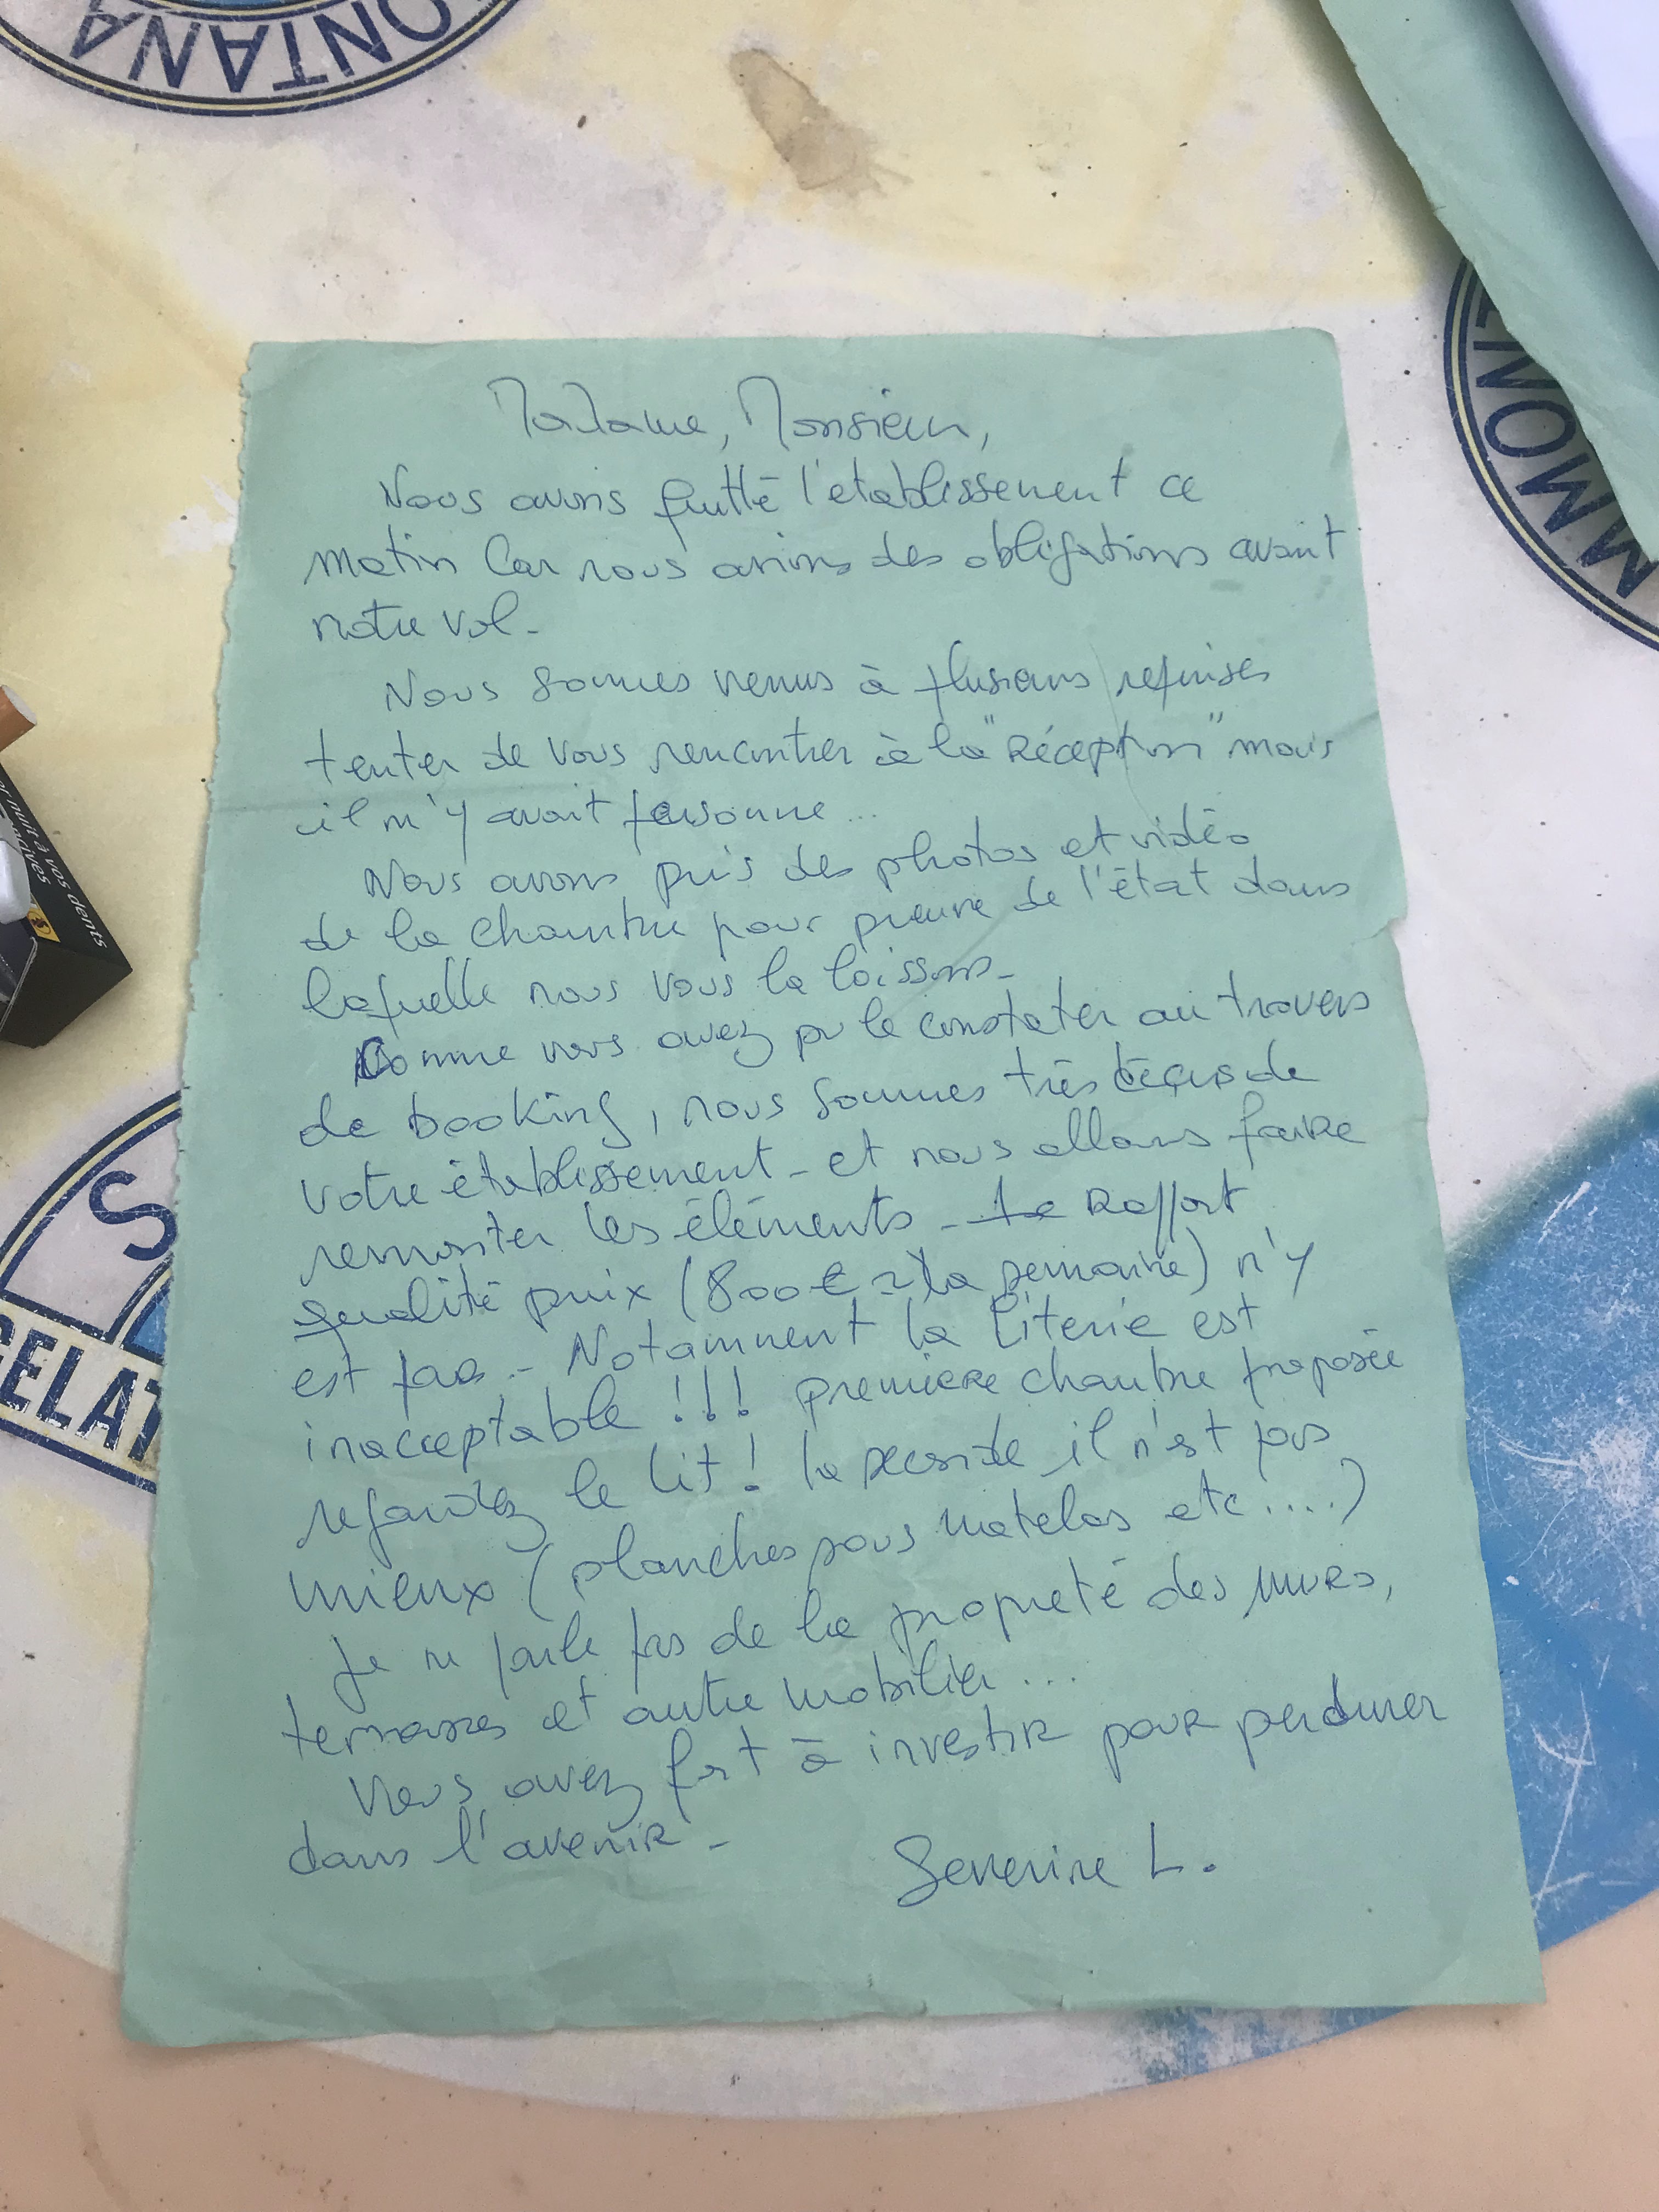 ONTANA
MMONE
Madame, Monsieur,
Nous avons quitté l'établissement ce
matin car nous avions des obligations avant
notre vol.
Nous sommes venus à plusieurs reprises
tenter de vous rencontrer à la "Réception" mais
il n'y avait personne...
Nous avons pris des photos et vidéo
de la chambre pour preuve de l'état dans
laquelle nous vous la laissons.
Comme vous avez pu le constater au travers
de booking, nous sommes très déçus de
votre établissement - et nous allons faire
remonter les éléments - Le Rapport
qualité prix (800€ la semaine) n'y
est pas - Notamment la literie est
inacceptable !!! première chambre proposée
regardez le lit ! la seconde il n'est pas
mieux (planches sous matelas etc....)
Je ne parle pas de la propreté des murs,
terrasses et autre mobilier...
Vous avez fort à investir pour perdurer
dans l'avenir -
Severine L.
nuit à vos dents
gencives
S
GELAT